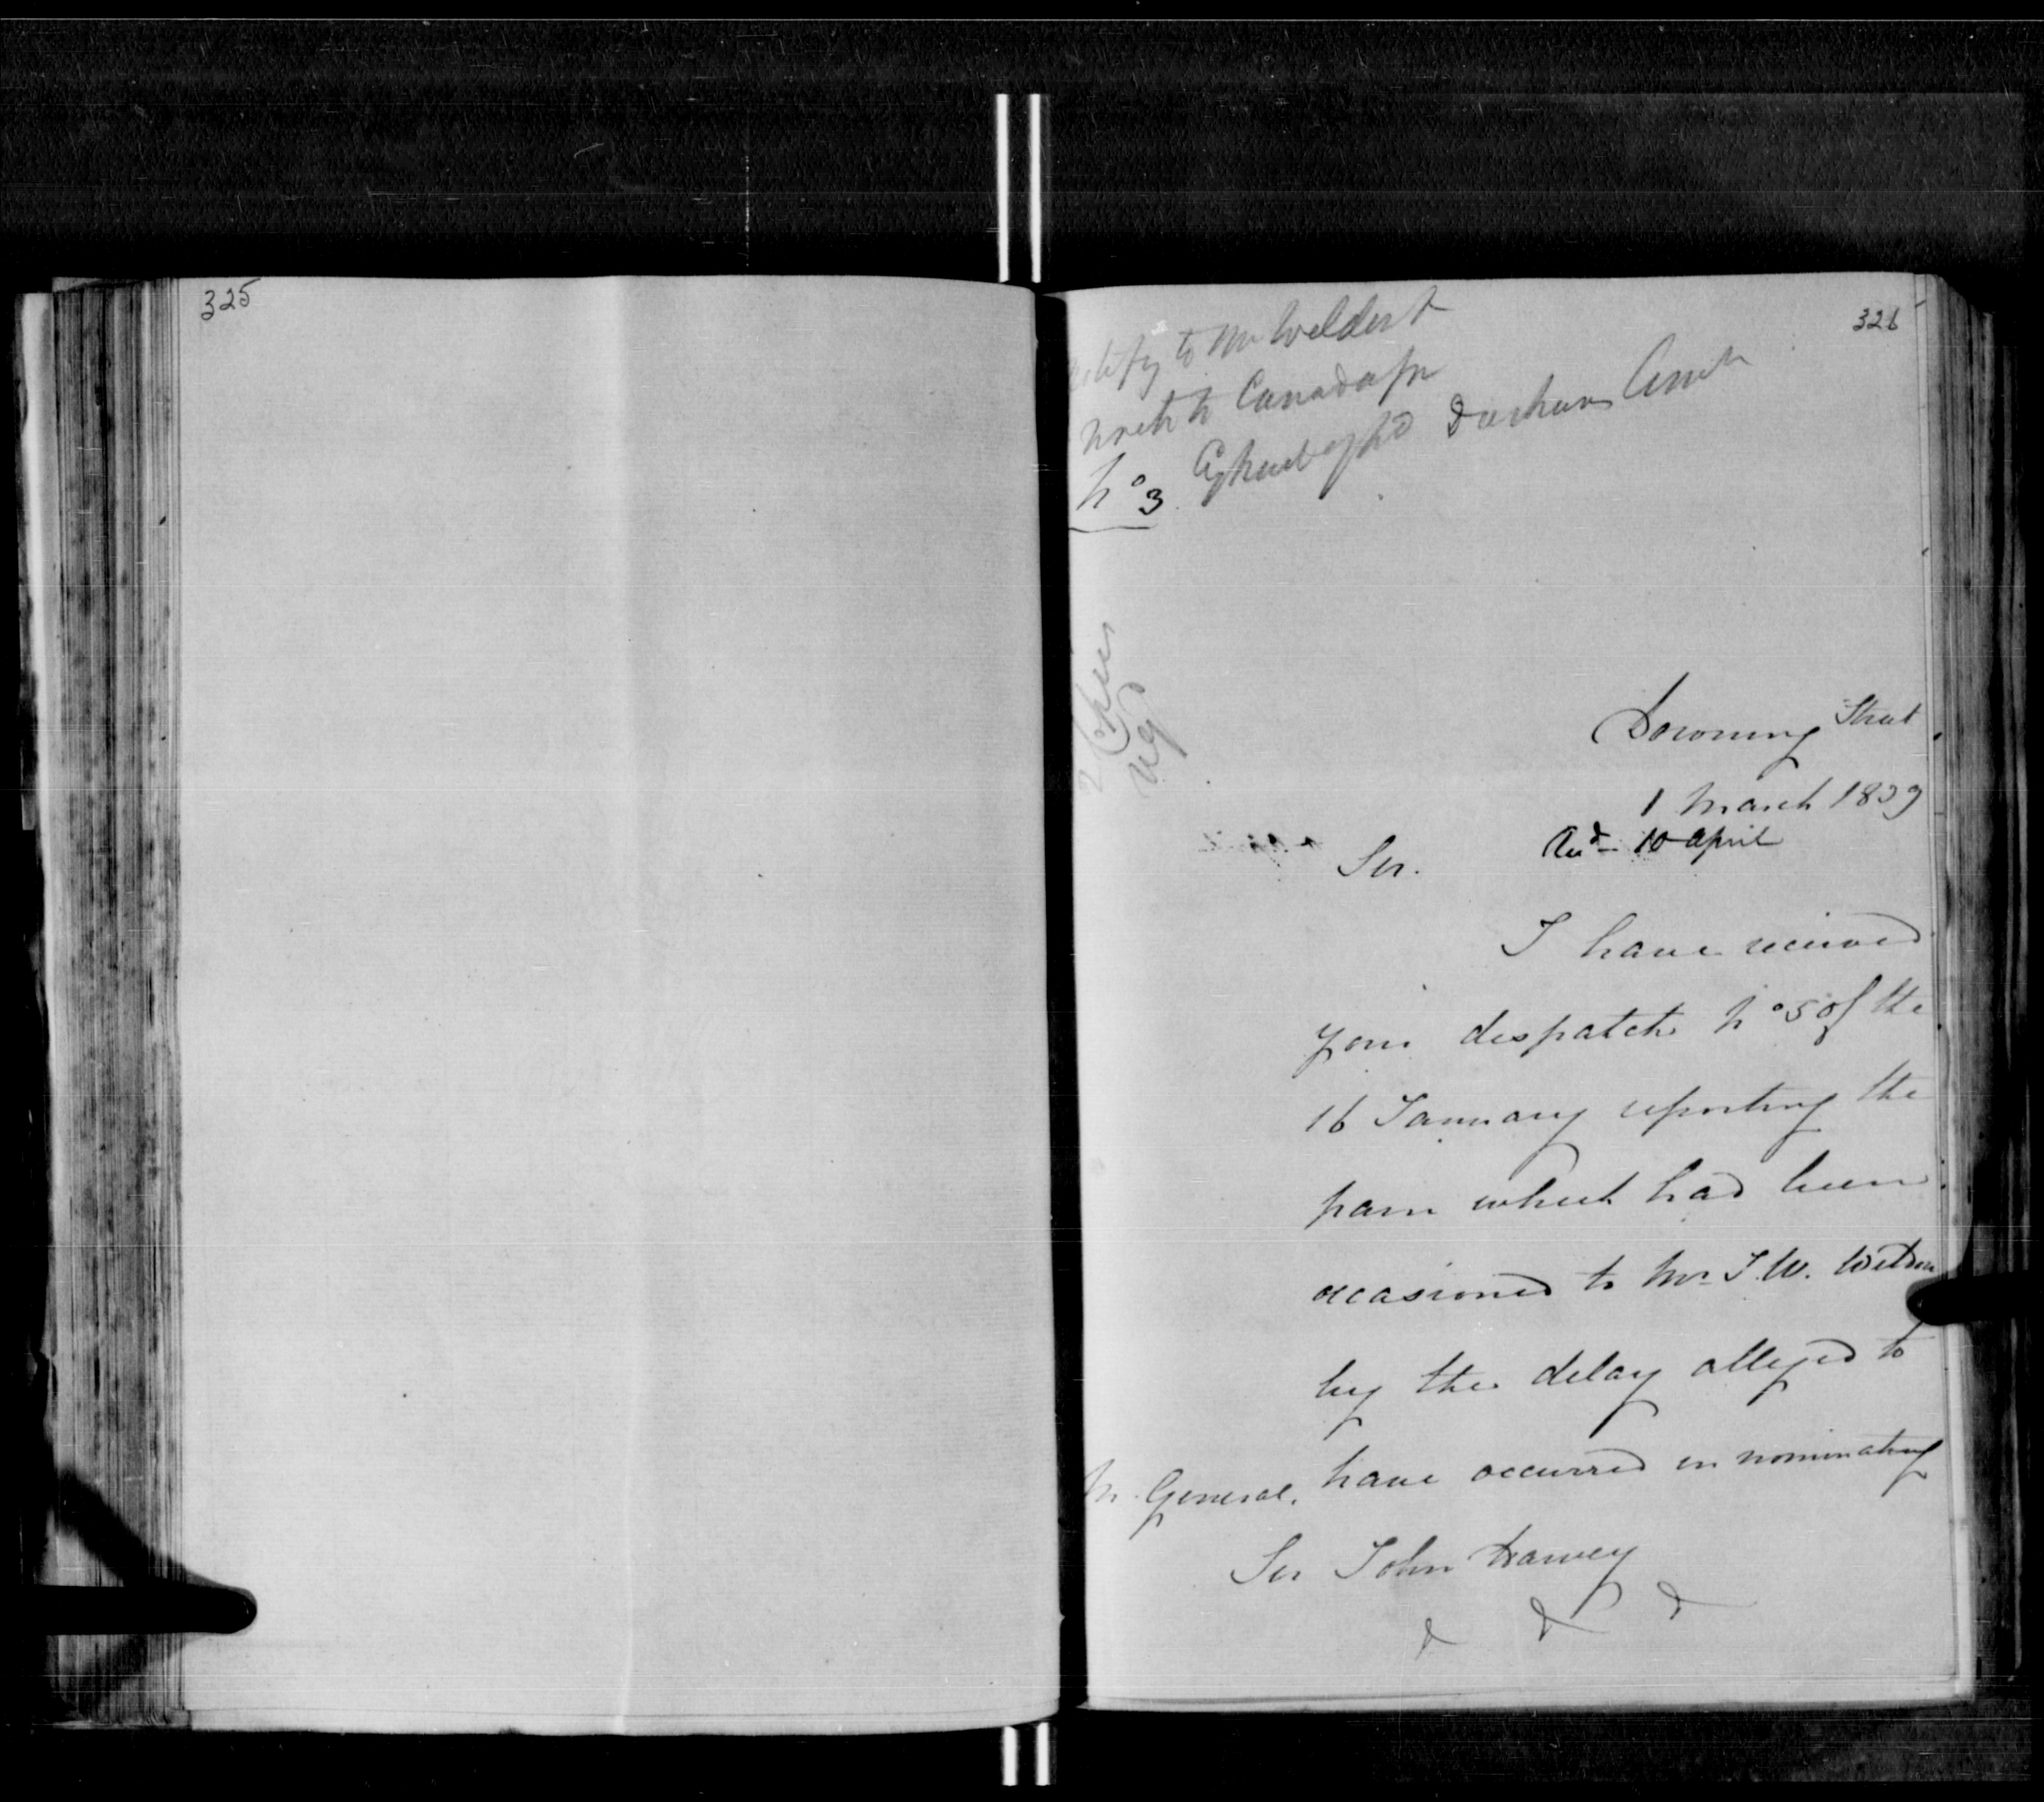 325
326
to Mr Weldon &
Canada for
No 3.
2 Copies
Downing Street
1 March 1839
Recd – 10 April
Sir.
I have received
your despatch No 5 of the
16 January reporting the
pain which had been
occasioned to Mr J. W. Weldon
by the delay alleged to
have occurred in nominating
M. General.
Sir John Harvey
& & &